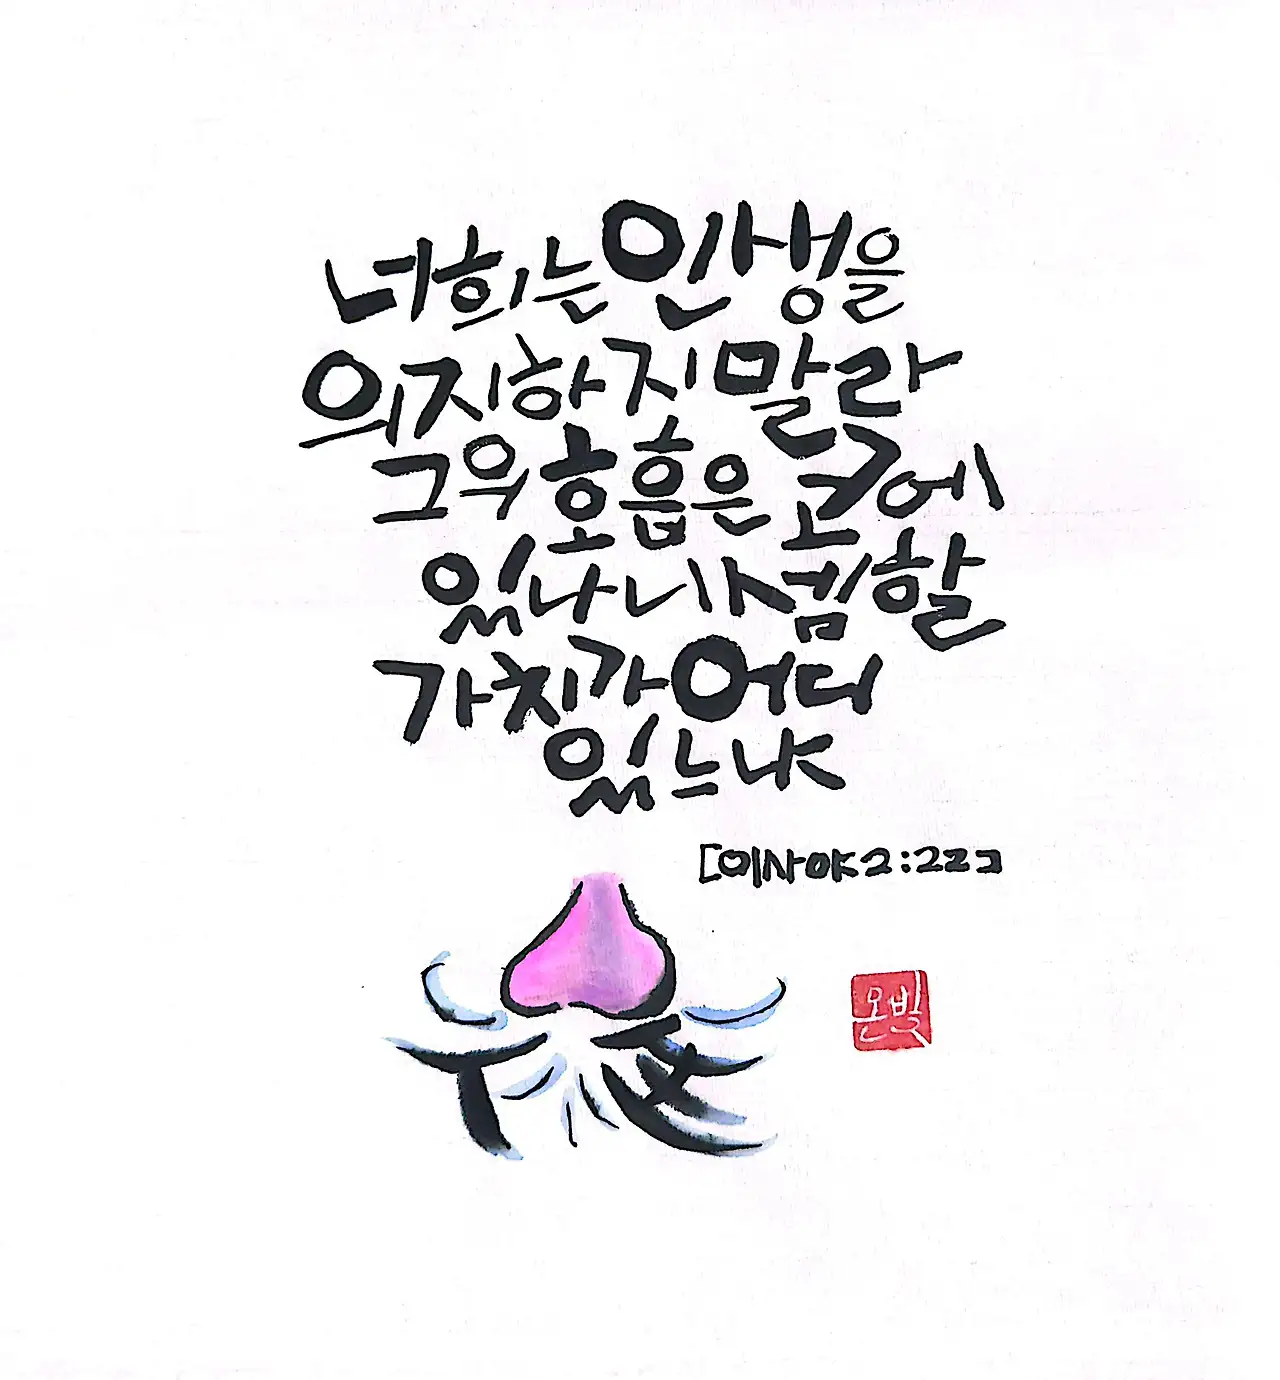 너희는 인생을
의지하지 말라
그의 호흡은 코에
있나니 셈할
가치가 어디
있느냐
[이사야2:22]
온빛